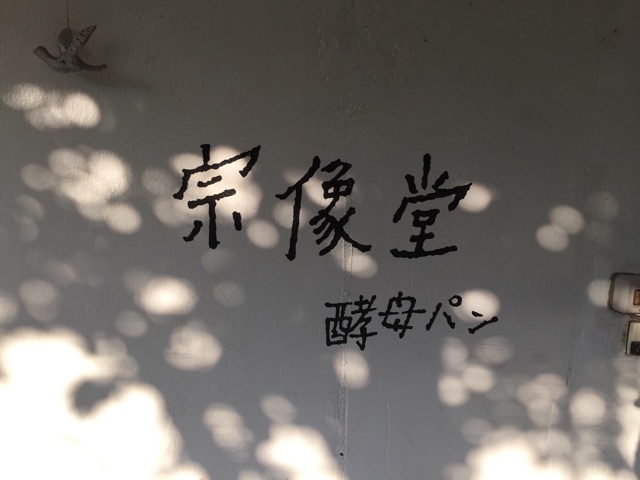 宗像堂
酵母パン